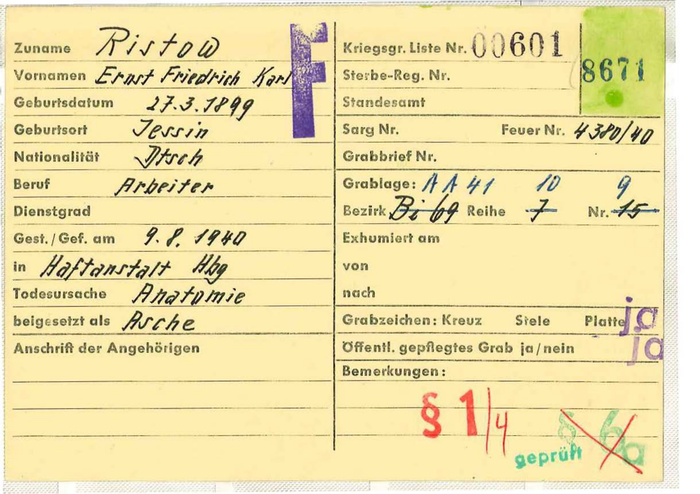 Zuname Ristow
Vornamen Ernst Friedrich Karl
Geburtsdatum 27.3.1899
Geburtsort Jessin
Nationalität Dtsch
Beruf Arbeiter
Dienstgrad
Gest./Gef. am 9.8.1940
in Haftanstalt Hbg
Todesursache Anatomie
beigesetzt als Asche
Anschrift der Angehörigen
F
Kriegsgr. Liste Nr. 00601
8671
Sterbe-Reg. Nr.
Standesamt
Sarg Nr. Feuer Nr. 4380/40
Grabbrief Nr.
Grablage: AA 41 10 9
Bezirk Bi 69 Reihe 7 Nr. 15
Exhumiert am
von
nach
Grabzeichen: Kreuz Stele Platte ja
Öffentl. gepflegtes Grab ja/nein ja
Bemerkungen:
§ 1/4
geprüft
§ 6a